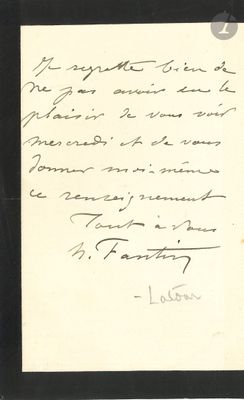 Je regrette bien de
ne pas avoir eu le
plaisir de vous voir
mercredi et de vous
donner moi-même
ce renseignement
Tout à vous
h. Fantin
- Latour